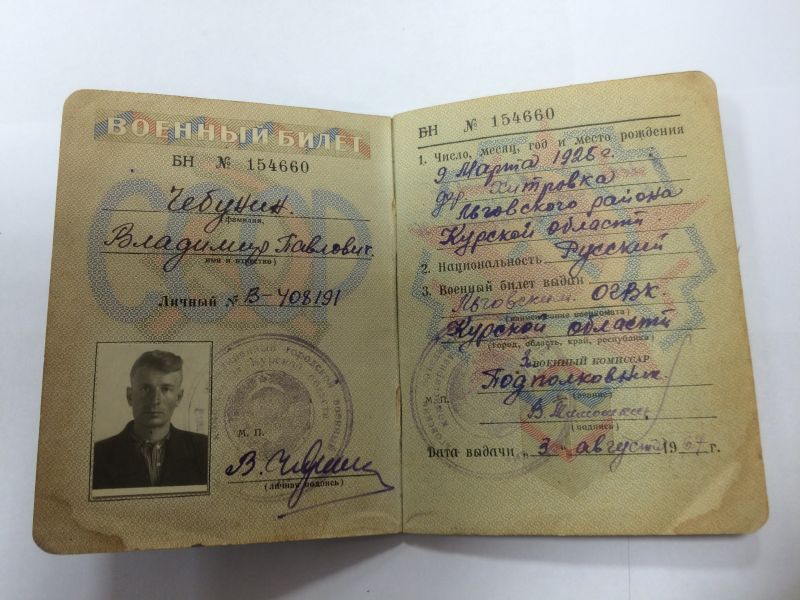 ВОЕННЫЙ БИЛЕТ
БН № 154660
Чебунин.
(фамилия,
Владимир Павлович.
имя и отчество)
Личный № В-408191
М. П.
(личная подпись)
БН № 154660
1. Число, месяц, год и место рождения
9 Марта 1926 г.
дер. Хитровка
Льговского района
Курской области
2. Национальность Русский
3. Военный билет выдан
Льговским ОГВК.
(наименование военкомата)
Курской области
(город, область, край, республика)
ВОЕННЫЙ КОМИССАР
Подполковник
(звание)
М. П.
(подпись)
Дата выдачи „3" августа 19 г.